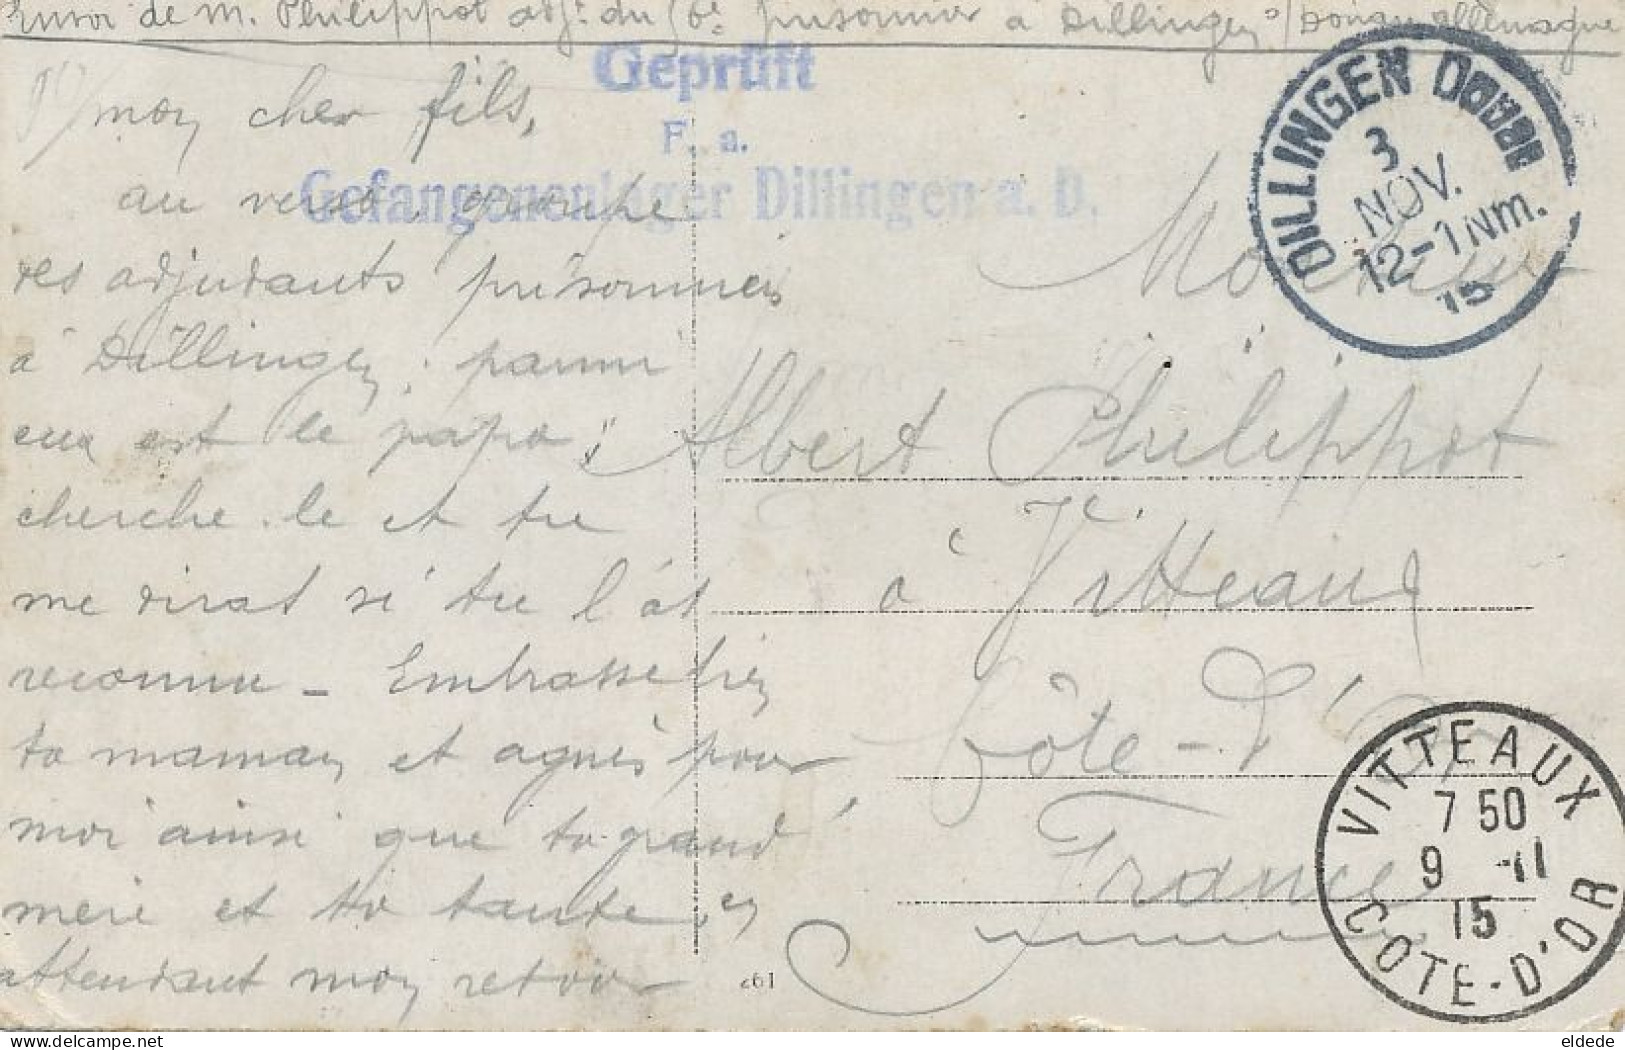 Envoi de M. Philippot adjt du 56e prisonnier à Dillingen s/Donau allemagne
Geprüft
F. a.
Gefangenenlager Dillingen a. D.
DILLINGEN
3
NOV.
12-1Nm.
15
mon cher fils,
au verso, groupe
des adjudants prisonniers
à Dillingen; parmi
eux est le papa;
cherche-le et tu
me diras si tu l'as
reconnu - Embrasse bien
ta maman et agnès pour
moi ainsi que ta grand'
mère et ta tante, en
attendant mon retour
Monsieur
Albert Philippot
à Vitteaux
Côte-d'Or
France
VITTEAUX
7 50
9 -11
15
COTE-D'OR
261
eldede